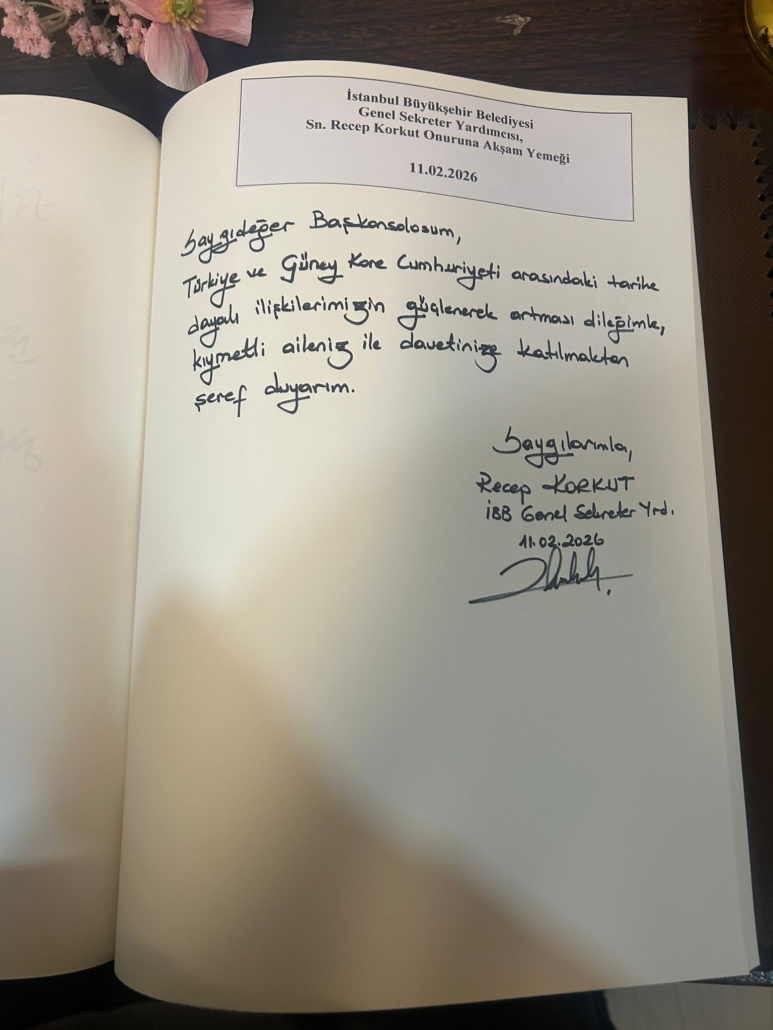 İstanbul Büyükşehir Belediyesi
Genel Sekreter Yardımcısı,
Sn. Recep Korkut Onuruna Akşam Yemeği
11.02.2026
Saygıdeğer Başkonsolosum,
Türkiye ve Güney Kore Cumhuriyeti arasındaki tarihe
dayalı ilişkilerimizin güçlenerek artması dileğimle,
kıymetli aileniz ile davetinize katılmaktan
şeref duyarım.
Saygılarımla,
Recep KORKUT
İBB Genel Sekreter Yrd.
11.02.2026